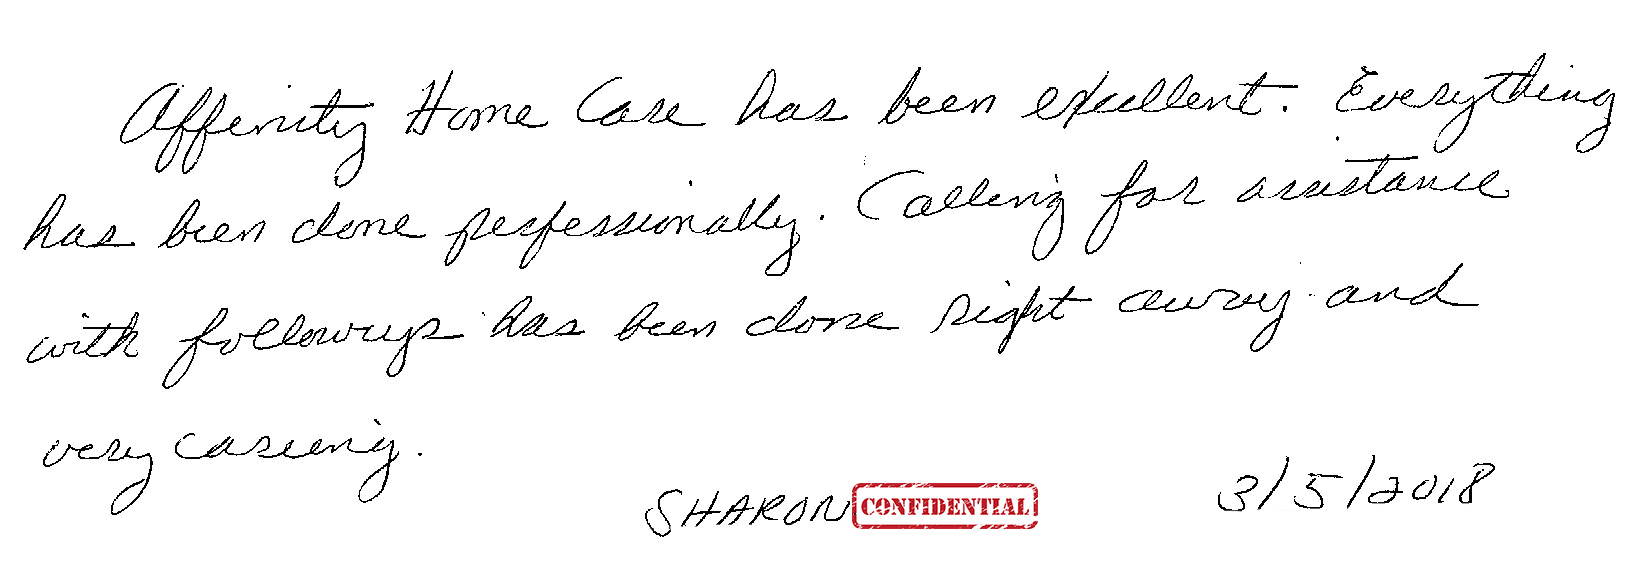 Affinity Home Care has been excellent. Everything
has been done perfessionally. Calling for assistance
with followups has been done right away and
very careing.
SHARON CONFIDENTIAL 3/5/2018